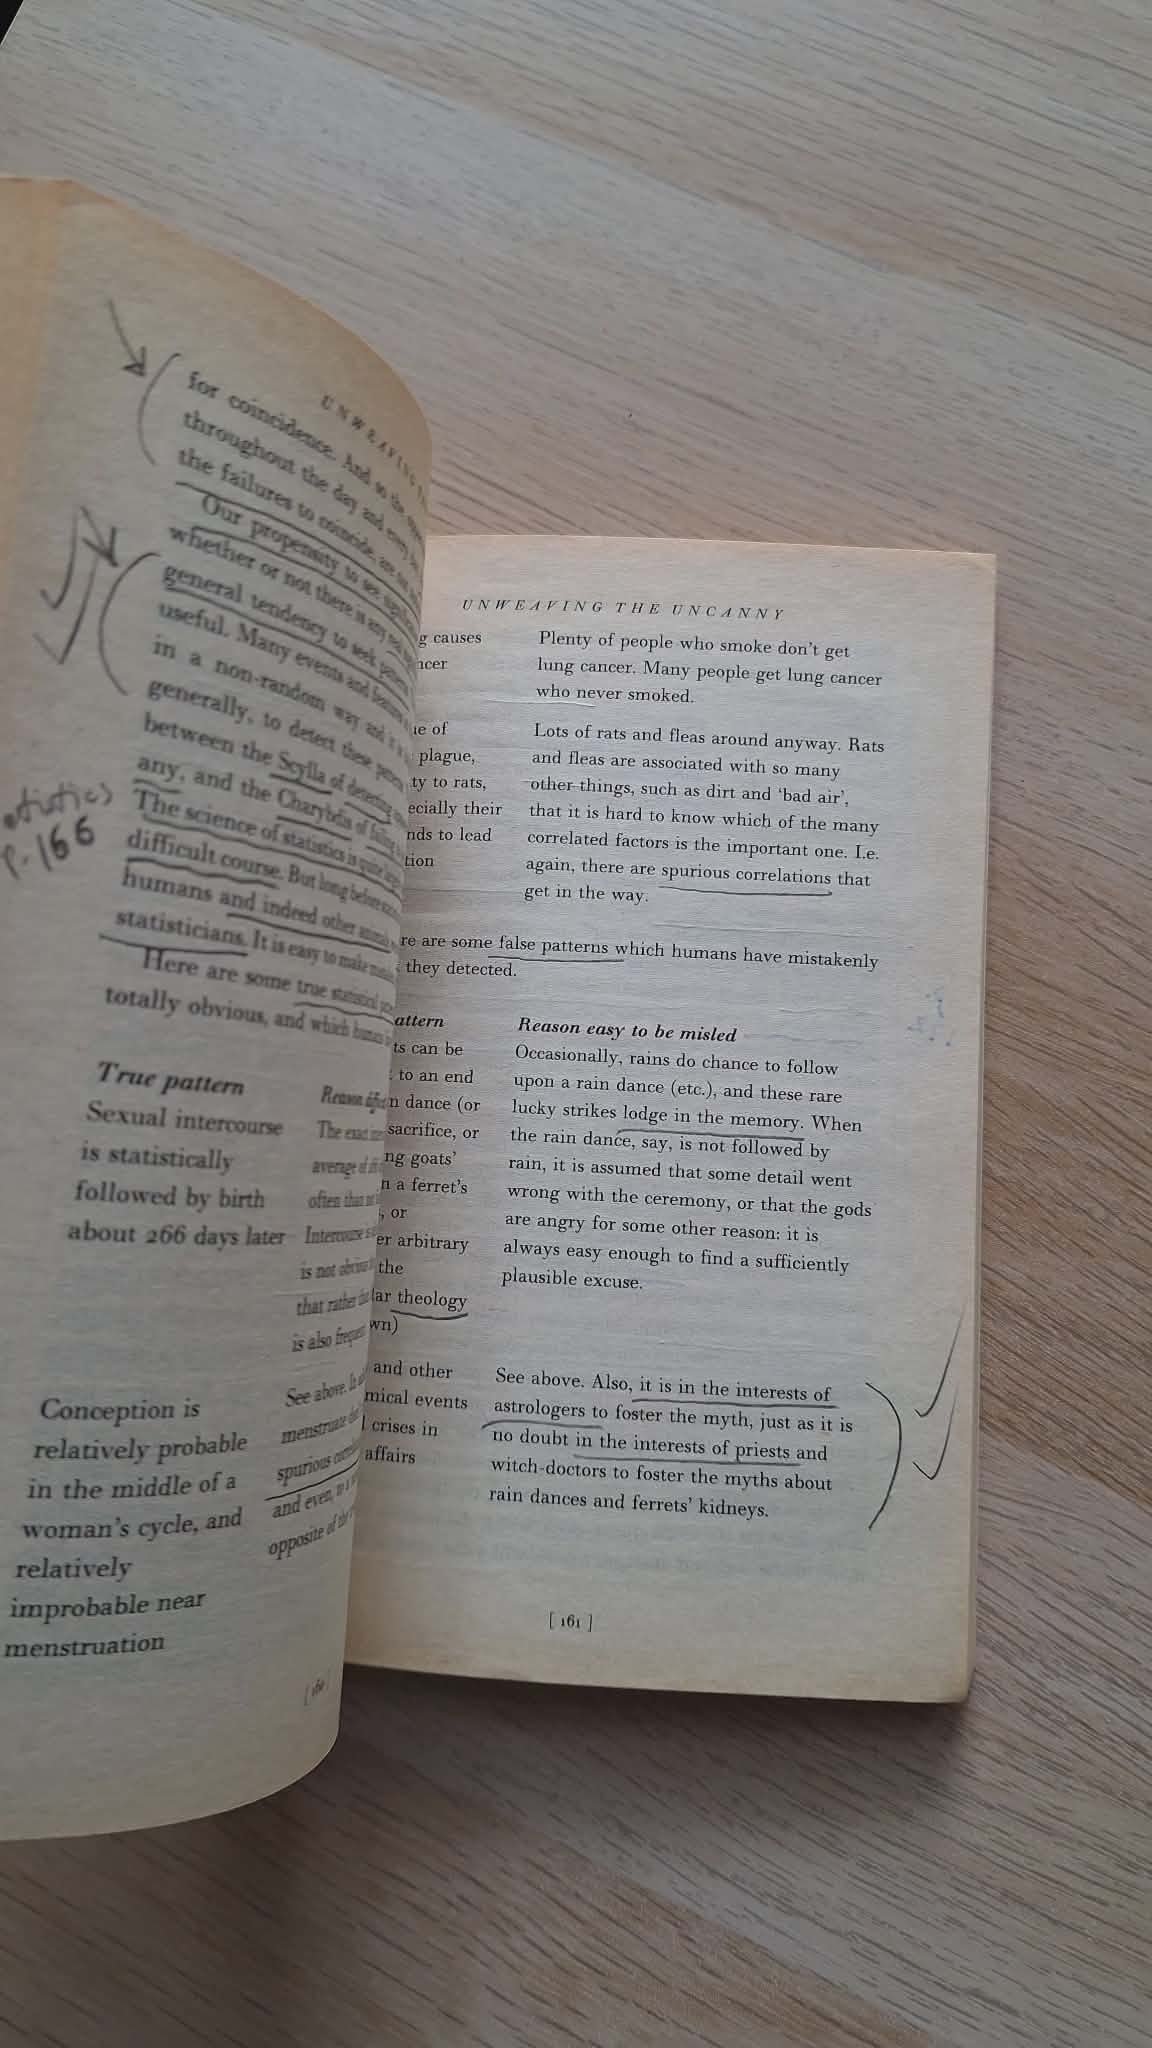 UNWEAVING
for coincidence. And so the
throughout the day and every
the failures to coincide, are not
Our propensity to see
whether or not there is any
general tendency to seek patterns
useful. Many events and features
in a non-random way and it is
generally, to detect these patterns
between the Scylla of detecting
any, and the Charybdis of failing
The science of statistics is quite
difficult course. But long before
humans and indeed other
statisticians. It is easy to make
Here are some true statistical
totally obvious, and which
p. 166
True pattern
Sexual intercourse
is statistically
followed by birth
about 266 days later
Reason
The exact
average of
often than not
Intercourse
is not obvious
that rather
is also frequent
Conception is
relatively probable
in the middle of a
woman's cycle, and
relatively
improbable near
menstruation
See above.
menstruate
spurious
and even,
opposite of the
UNWEAVING THE UNCANNY
g causes
ncer
Plenty of people who smoke don't get
lung cancer. Many people get lung cancer
who never smoked.
of
plague,
ty to rats,
ecially their
nds to lead
tion
Lots of rats and fleas around anyway. Rats
and fleas are associated with so many
other things, such as dirt and 'bad air',
that it is hard to know which of the many
correlated factors is the important one. I.e.
again, there are spurious correlations that
get in the way.
re are some false patterns which humans have mistakenly
they detected.
attern
ts can be
to an end
n dance (or
sacrifice, or
ng goats'
n a ferret's
, or
er arbitrary
the
lar theology
wn)
Reason easy to be misled
Occasionally, rains do chance to follow
upon a rain dance (etc.), and these rare
lucky strikes lodge in the memory. When
the rain dance, say, is not followed by
rain, it is assumed that some detail went
wrong with the ceremony, or that the gods
are angry for some other reason: it is
always easy enough to find a sufficiently
plausible excuse.
and other
mical events
crises in
affairs
See above. Also, it is in the interests of
astrologers to foster the myth, just as it is
no doubt in the interests of priests and
witch-doctors to foster the myths about
rain dances and ferrets' kidneys.
[ 161 ]